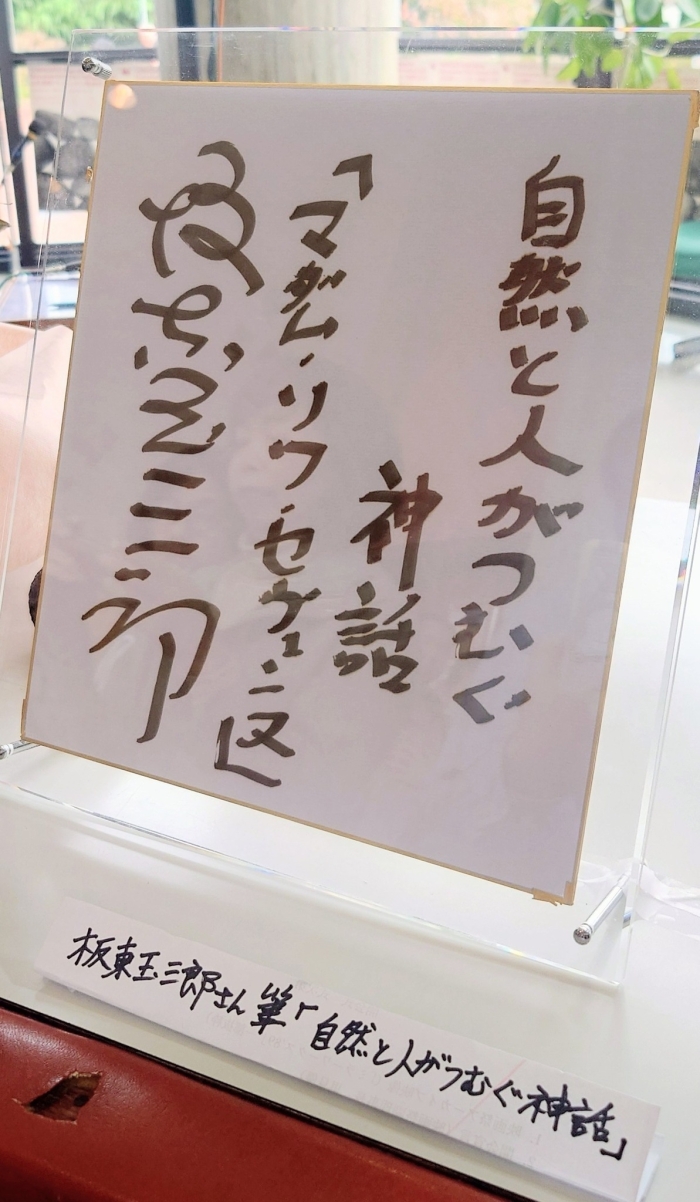 自然と人がつむぐ
神話
「マダム・ソワ・セヴェンヌ」
坂東玉三郎
板東玉三郎さん 筆「自然と人がつむぐ神話」